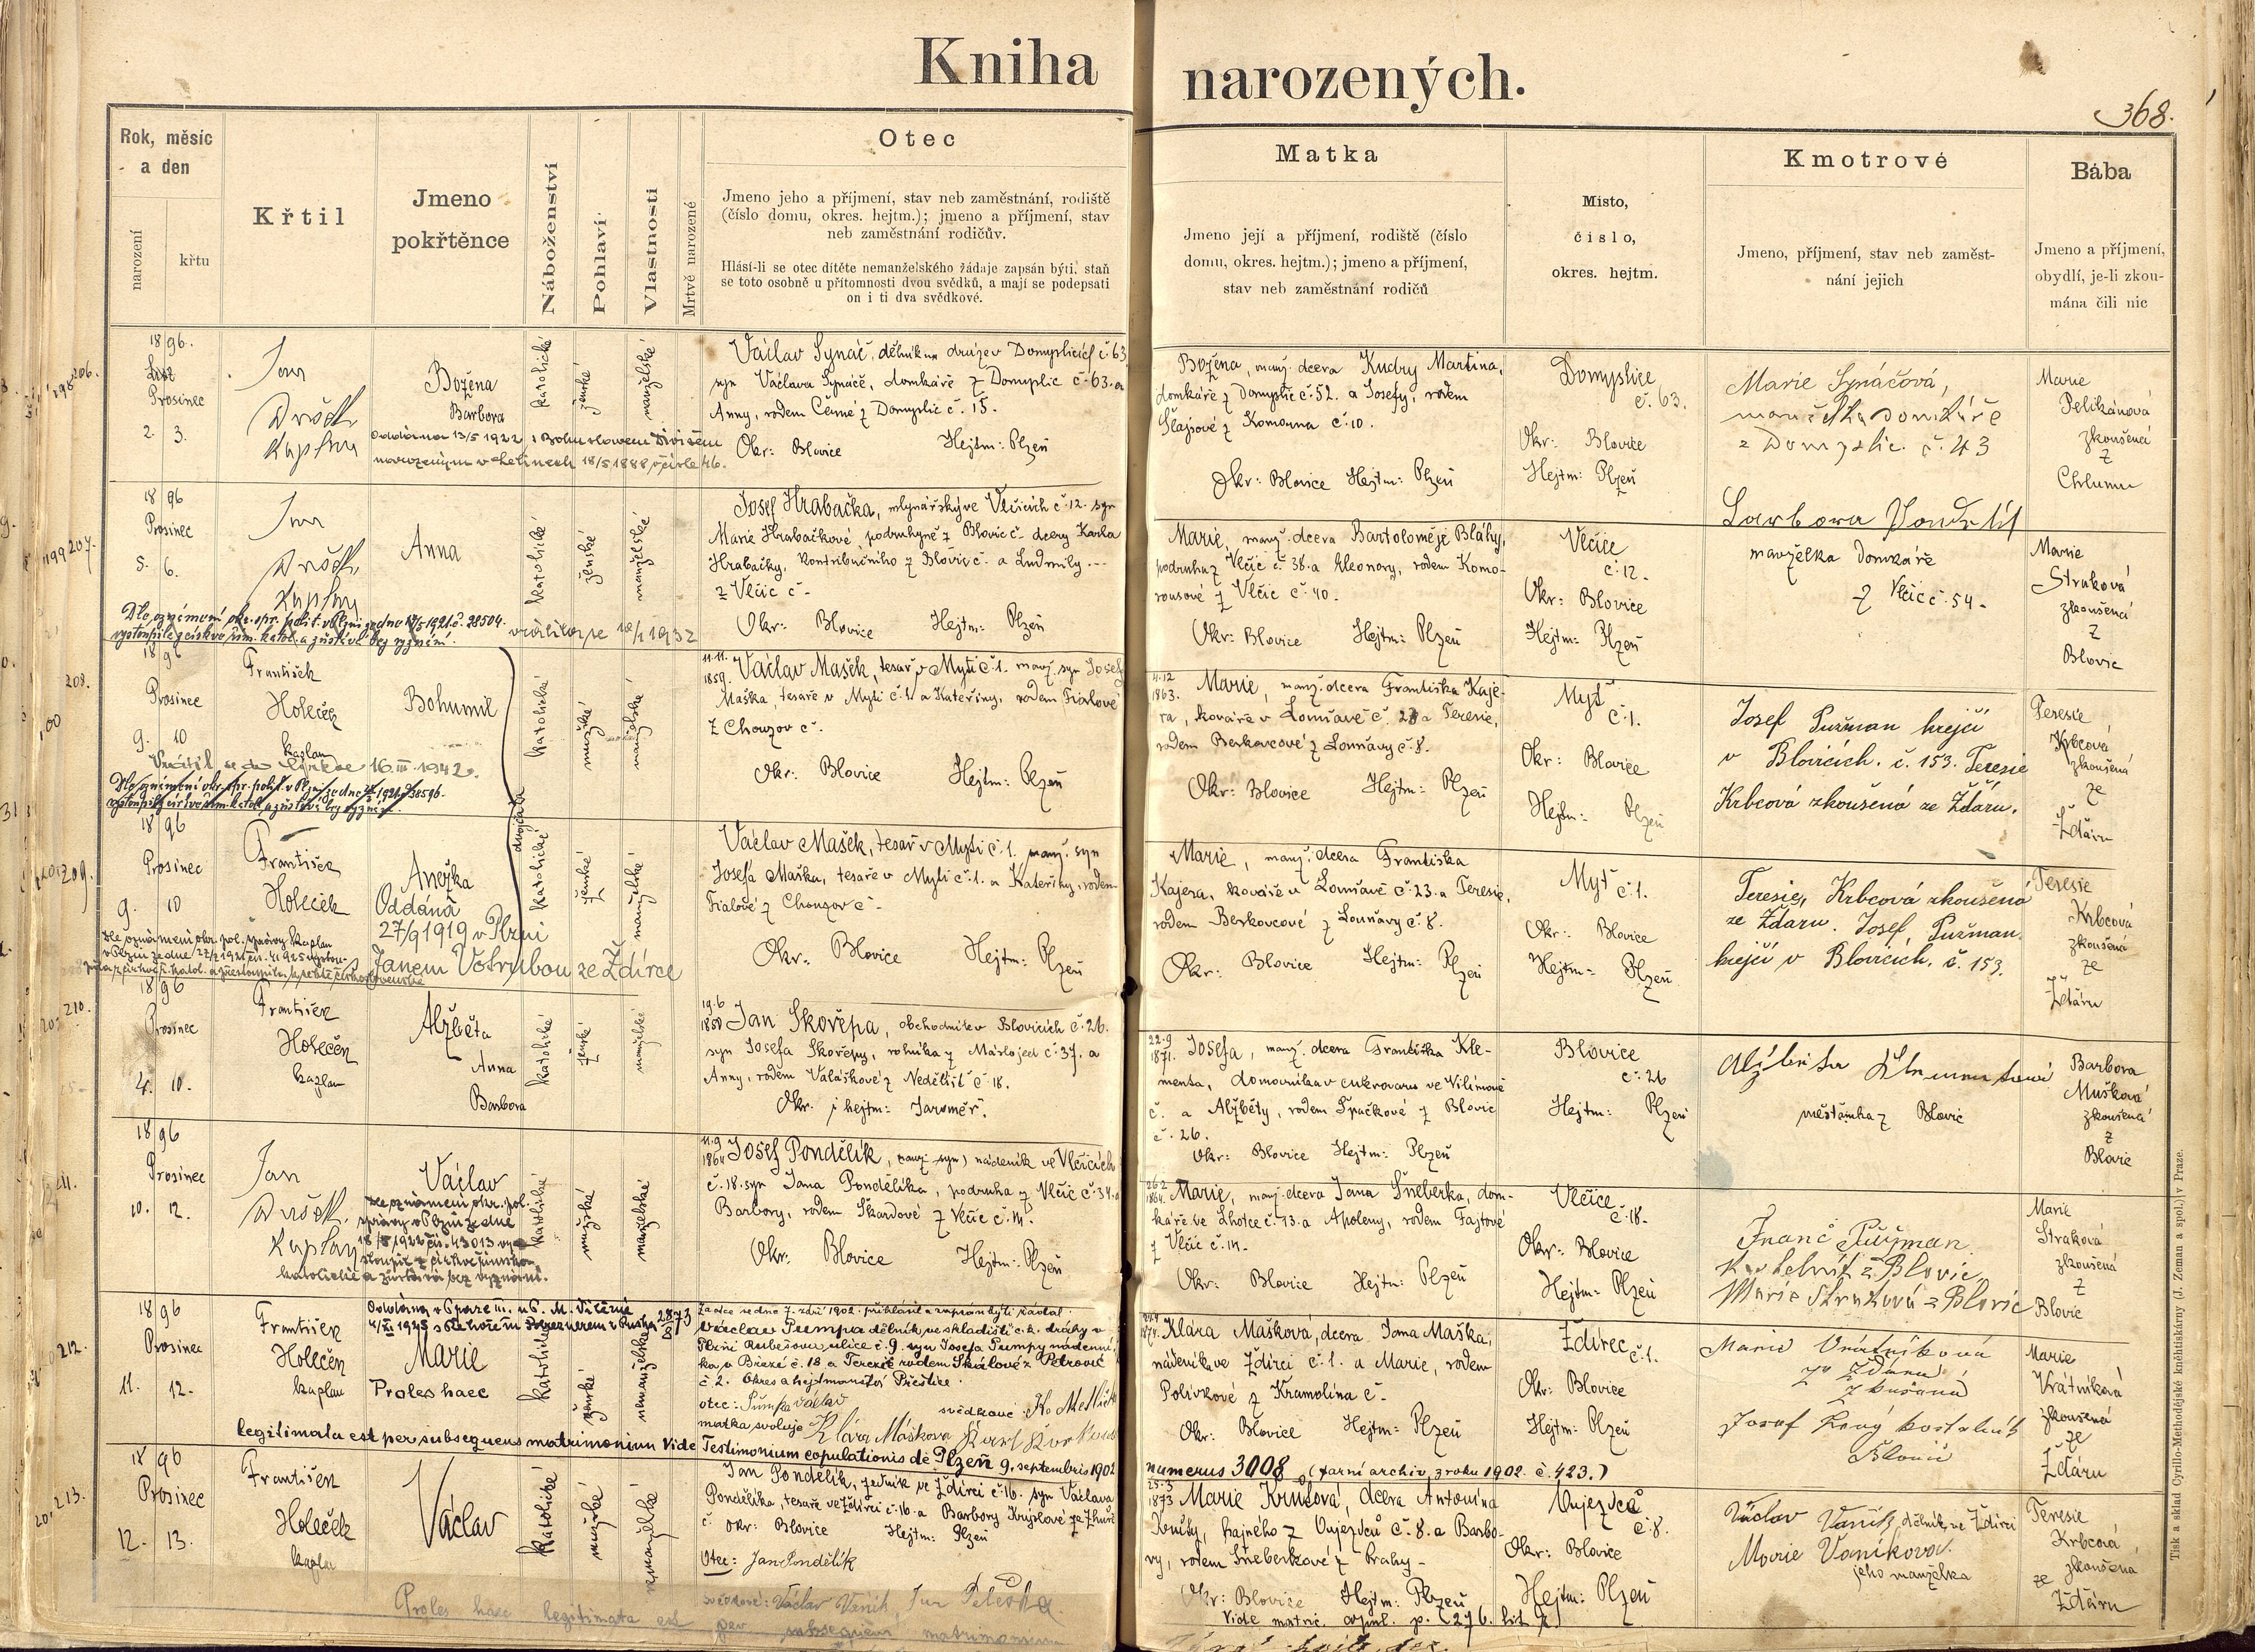 Kniha narozených.
368.
Rok, měsíc
a den
narození
křtu
Křtil
Jmeno
pokřtěnce
Náboženství
Pohlaví
Vlastnosti
Mrtvě narozené
Otec
Jmeno jeho a příjmení, stav neb zaměstnání, rodiště
(číslo domu, okres. hejtm.); jmeno a příjmení, stav
neb zaměstnání rodičův.
Hlásí-li se otec dítěte nemanželského žádaje zapsán býti, staň
se toto osobně u přítomnosti dvou svědků, a mají se podepsati
on i ti dva svědkové.
Matka
Jmeno její a příjmení, rodiště (číslo
domu, okres. hejtm.); jmeno a příjmení,
stav neb zaměstnání rodičů
Místo,
číslo,
okres. hejtm.
Kmotrové
Jmeno, příjmení, stav neb zaměst-
nání jejich
Bába
Jmeno a příjmení,
obydlí, je-li zkou-
mána čili nic
206.
1896.
Prosinec
2. 3.
Jan
kaplan
Božena
Barbora
Oddána 13/5 1922 s Bohuslavem Divišem
narozeným v 18/5 1888 čísle 46.
katolické
ženské
manželské
Václav Synáč, dělník na dráze v Domyslicích č. 63
syn Václava Synáče, domkáře z Domyslic č. 63. a
Anny, rodem Černé z Domyslic č. 15.
Okr: Blovice Hejtm: Plzeň
Božena, manž. dcera Kudry Martina,
domkáře z Domyslic č. 52. a Josefy, rodem
z Komorna č. 10.
Okr: Blovice Hejtm: Plzeň
Domyslice
č. 63.
Okr: Blovice
Hejtm: Plzeň
Marie Synáčová,
manželka domkáře
z Domyslic. č. 43
Marie
Pelikánová
zkoušená
z
Chlumu
207.
1896
Prosinec
5. 6.
Jan
kaplan
Anna
Dle oznámení okr. spr. polit. v Plzni ze dne 1921 č. 28504.
vystoupila z církve řím. katol. a zůstává bez vyznání.
vrátila se 1932
katolické
ženské
manželské
Josef Hrabačka, mlynářský ve Vlčicích č. 12. syn
Marie Hrabačkové podruhyně z Blovic č. dcery Karla
Hrabačky, kontribučního z Blovic č. a Ludmily ---
z Vlčic č -
Okr: Blovice Hejtm: Plzeň
Marie, manž. dcera Bartoloměje Bláhy,
podruha z Vlčic č. 38. a Eleonory, rodem Komo-
rousové z Vlčic č. 40.
Okr: Blovice Hejtm: Plzeň
Vlčice
č. 12.
Okr: Blovice
Hejtm: Plzeň
Barbora
manželka domkáře
z Vlčic č. 54.
Marie
Straková
zkoušená
z
Blovic
208.
1896
Prosinec
9. 10
František
Holeček
kaplan
Bohumil
Vrátil se do církve 16.III.1942.
Dle oznámení okr. spr. polit. v Plzni ze dne 1921 č. 38596.
vystoupil z církve řím. katol. a zůstává bez vyznání.
dvojčata
katolické
mužské
manželské
11.11.
1859.
Václav Mašek, tesař v Mýti č. 1. manž. syn Josefa
Maška, tesaře v Mýti č. 1. a Kateřiny, rodem Fialové
z Chouzov č.
Okr: Blovice Hejtm: Plzeň
4.12
1863.
Marie, manž. dcera Františka Kaje-
ra, kováře v Lounšavě č. 23 a Teresie,
rodem Berkovcové z Lounšavy č. 8.
Okr: Blovice Hejtm: Plzeň
Mýť
č. 1.
Okr: Blovice
Hejtm: Plzeň
Josef Pužman krejčí
v Blovicích. č. 153. Teresie
Krbcová zkoušená ze Ždáru.
Teresie
Krbcová
zkoušená
ze
Ždáru
209.
1896
Prosinec
9. 10
František
Holeček
kaplan
Anežka
Oddána
27/9 1919 v Plzni
s Janem Votrubou ze Ždírce
katolické
ženské
manželské
Václav Mašek, tesař v Mýti č. 1. manž. syn
Josefa Maška, tesaře v Mýti č. 1. a Kateřiny, rodem
Fialové z Chouzov č -
Okr: Blovice Hejtm: Plzeň
Marie, manž. dcera Františka
Kajera, kováře v Lounšavě č. 23. a Teresie,
rodem Berkovcové z Lounšavy č. 8.
Okr: Blovice Hejtm: Plzeň
Mýť č. 1.
Okr: Blovice
Hejtm: Plzeň
Teresie, Krbcová zkoušená
ze Ždaru. Josef Pužman
krejčí v Blovicích. č. 153.
Teresie
Krbcová
zkoušená
ze
Ždáru
210.
1896
Prosinec
4. 10.
František
Holeček
kaplan
Alžběta
Anna
Barbora
katolické
ženské
manželské
19.6
1858
Jan Skořepa, obchodník v Blovicích č. 26.
syn Josefa Skořepy, rolníka z Máslojed č. 37. a
Anny, rodem Valáškové z Nedělišť č. 18.
Okr. i hejtm: Jaroměř.
22.9
1871.
Josefa, manž. dcera Františka Kle-
menta, domovníka v cukrovaru ve Vilímově
č. a Alžběty, rodem Špačkové z Blovic
č. 26.
Okr: Blovice Hejtm: Plzeň
Blovice
č. 26
Hejtm: Plzeň
Alžběta Klementová
měšťanka z Blovic
Barbora
Mušková
zkoušená
z
Blovic
211.
1896
Prosinec
10. 12.
Jan
kaplan
Václav
Dle oznámení okr. pol.
správy v Plzni ze dne
18/8 1922 čís. 43013 vy-
stoupil z církve římsko
katolické a zůstává bez vyznání.
katolické
mužské
manželské
11.9
1864
Josef Pondělík, nádeník ve Vlčicích
č. 18. syn Jana Pondělíka, podruha z Vlčic č. 34. a
Barbory, rodem Škardové z Vlčic č. 14.
Okr: Blovice Hejtm: Plzeň
26.2
1864.
Marie, manž. dcera Jana Šneberka, dom-
káře ve Lhotce č. 13. a Apoleny, rodem Fajtové
z Vlčic č. 14.
Okr: Blovice Hejtm: Plzeň
Vlčice
č. 18.
Okr: Blovice
Hejtm: Plzeň
Franc Pužman
Kostelník z Blovic
Marie Straková z Blovic
Marie
Straková
zkoušená
z
Blovic
212.
1896
Prosinec
11. 12.
František
Holeček
kaplan
Marie
Proles haec
katolické
ženské
nemanželské
Za otce se dne 7. září 1902. přihlásil a zapsán býti žádal
Václav Pumpa dělník ve skladišti c. k. dráhy v
Plzni Rubešova ulice č. 9. syn Josefa Pumpy nádenní-
ka v Březí č. 18 a Terezie rodem Skálové z Petrovic
č. 2. Okres a hejtmanství Přeštice.
otec: Pumpa Václav
svědkové:
matka svoluje Klára Mášková
legitimata est per subsequens matrimonium Vide Testimonium copulationis de Plzeň 9. septembris 1902
numerus 3008 (farní archiv z roku 1902. č. 423.)
Klára Mašková, dcera Jana Maška,
nádeníka ve Ždírci č. 1. a Marie, rodem
Polívkové z Kramolína č -
Okr: Blovice Hejtm: Plzeň
Ždírec č. 1.
Okr: Blovice
Hejtm: Plzeň
Marie Vrátníková
ze Ždáru
zkoušená
Josef kostelník
Blovic
Marie
Vrátníková
zkoušená
ze
Ždáru
213.
1896
Prosinec
12. 13.
František
Holeček
kaplan
Václav
katolické
mužské
nemanželské
Jan Pondělík, zedník ve Ždírci č. 16. syn Václava
Pondělíka, tesaře ve Ždírci č. 16. a Barbory
č. Okr: Blovice Hejtm: Plzeň
Otec: Jan Pondělík
svědkové: Václav Vaník, Jan
Proles haec legitimata est
per subsequens matrimonium
25.3
1873
Marie Krušová, dcera Antonína
Krušy, hajného z Oujezdců č. 8. a Barbo-
ry, rodem Šneberkové z Prahy -
Okr: Blovice Hejtm: Plzeň
Vide matric. copul. p. 276.
Oujezdce
č. 8.
Okr: Blovice
Hejtm: Plzeň
Václav Vaník, dělník ve Ždírci
Marie Vaníková
jeho manželka
Teresie
Krbcová
zkoušená
ze
Ždáru
Tisk a sklad Cyrillo-Methodějské knihtiskárny (J. Zeman a spol.) v Praze.